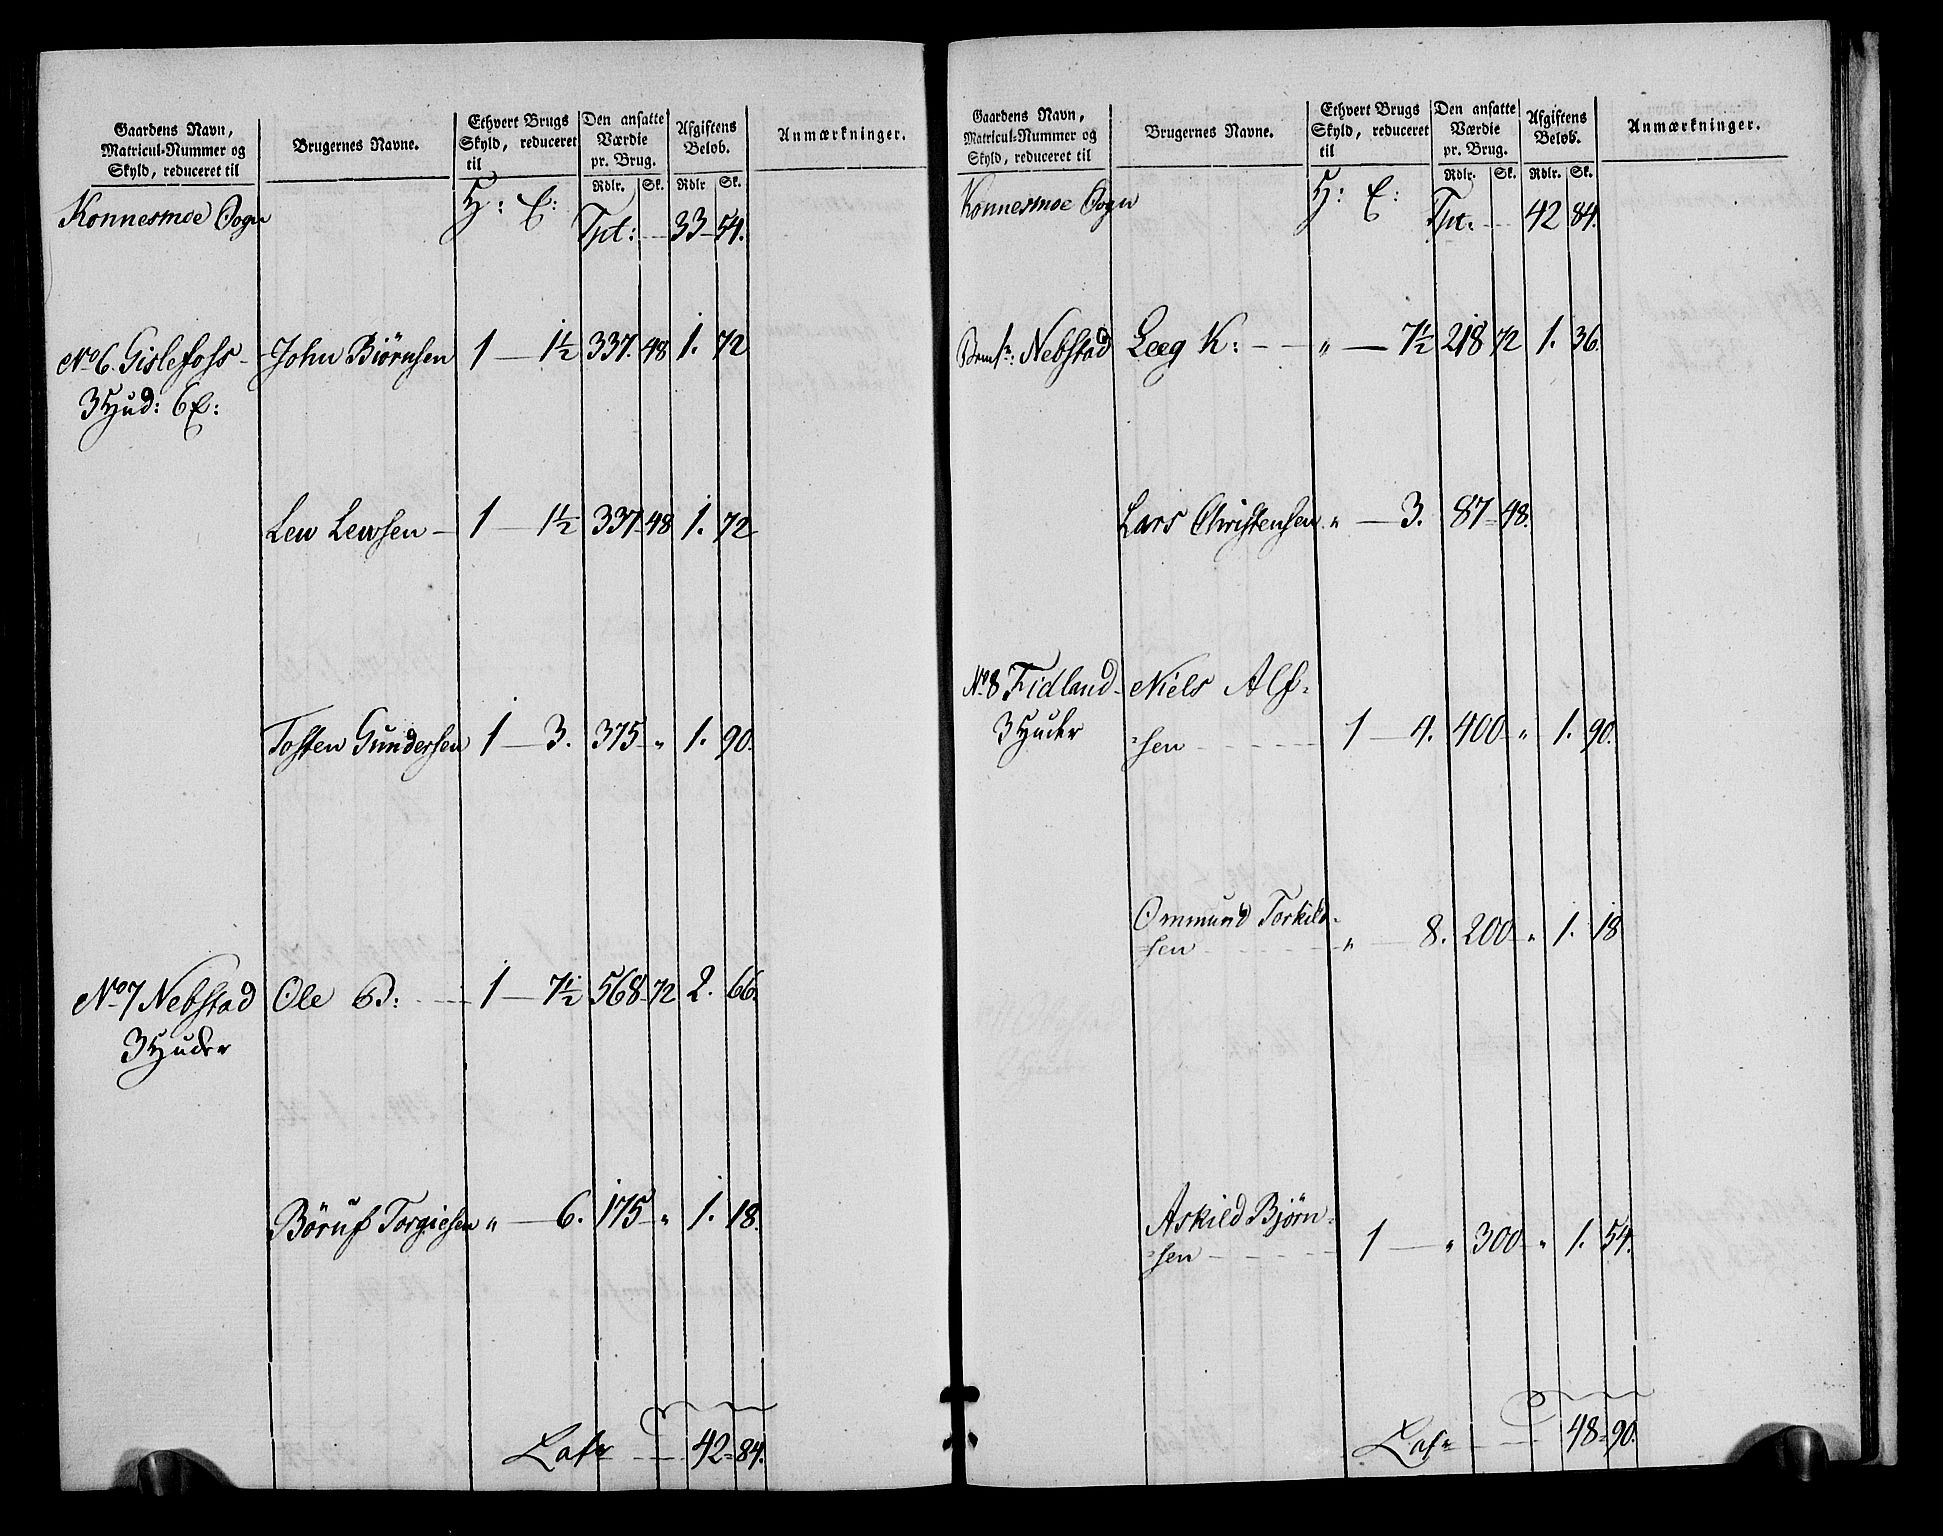 Gaardens Navn, Matricul-Nummer og Skyld, reduceret til | Brugernes Navne. | Ethvert Brugs Skyld, reduceret til | Den ansatte Værdie pr. Brug. Rdlr. Sk. | Afgiftens Beløb. Rdlr Sk. | Anmærkninger.
Konnesmoe Sogn H: E: Tpt: 33 54.
No 6. Gislefoss John Biørnsen 1 — 1½ 337. 48 1. 72
3 Hud: 6 E:
Lew Lewsen 1 — 1½ 337 48 1. 72
Tosten Gundersen 1 — 3. 375 " 1. 90.
No 7 Nebstad Ole 1 — 7½ 568 72 2. 66.
3 Huder
Børuf Torgiesen " — 6. 175 " 1. 18.
42 = 84.
Gaardens Navn, Matricul-Nummer og Skyld, reduceret til | Brugernes Navne. | Ethvert Brugs Skyld, reduceret til | Den ansatte Værdie pr. Brug. Rdlr. Sk. | Afgiftens Beløb. Rdlr. Sk. | Anmærkninger.
Konnesmoe Sogn H: E: Tpt. 42 84.
Nebstad Leeg K: " — 7½ 218 72 1. 36.
Lars Christensen " — 3. 87 = 48.
No 8 Fidland Niels Alf-
3 Huder sen 1 — 4. 400 " 1. 90.
Ommund Torkild-
sen " 8. 200 " 1. 18
Askild Bjørn-
sen 1 — " 300 " 1. 54.
48 = 90.